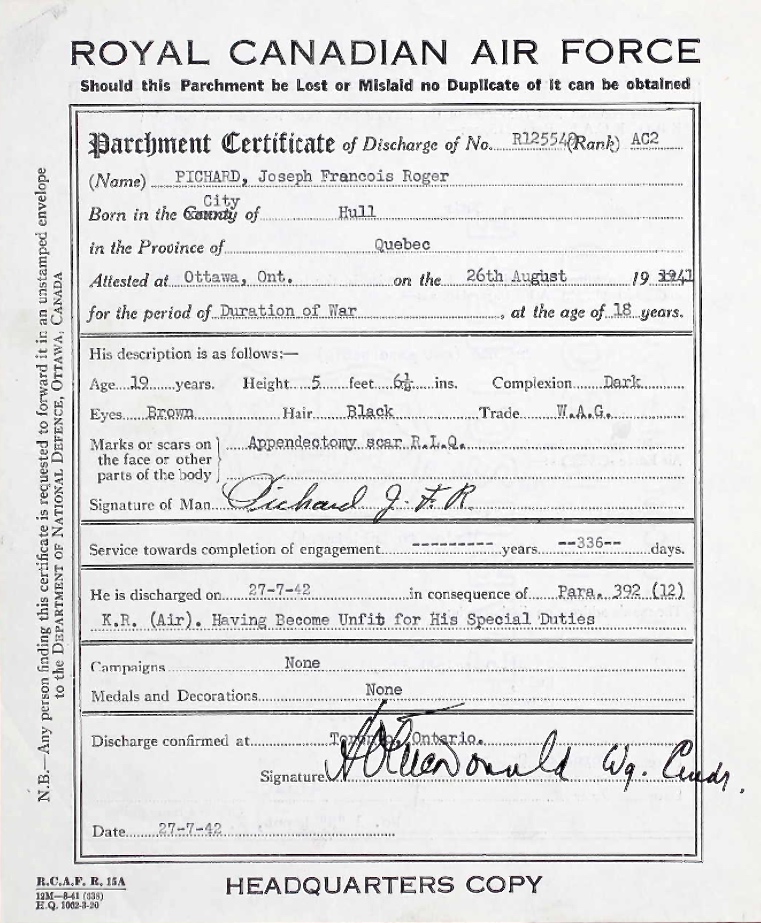 ROYAL CANADIAN AIR FORCE
Should this Parchment be Lost or Mislaid no Duplicate of it can be obtained
Parchment Certificate of Discharge of No. R125540 (Rank) AC2
(Name) PICHARD, Joseph Francois Roger
City
Born in the County of Hull
in the Province of Quebec
Attested at Ottawa, Ont. on the 26th August 19 1941
for the period of Duration of War, at the age of 18 years.
His description is as follows:—
Age 19 years. Height 5 feet 6½ ins. Complexion Dark
Eyes Brown Hair Black Trade W.A.G.
Marks or scars on the face or other parts of the body } Appendectomy scar R.L.Q.
Signature of Man Pichard J. F. R.
Service towards completion of engagement --------- years --336-- days.
He is discharged on 27-7-42 in consequence of Para. 392 (12)
K.R. (Air). Having Become Unfit for His Special Duties
Campaigns None
Medals and Decorations None
Discharge confirmed at Toronto, Ontario.
Signature MacDonald Wg. Cmdr.
Date 27-7-42
N.B.—Any person finding this certificate is requested to forward it in an unstamped envelope
to the DEPARTMENT OF NATIONAL DEFENCE, OTTAWA, CANADA
R.C.A.F. R. 15A
12M—8-41 (638)
H.Q. 1062-3-20
HEADQUARTERS COPY